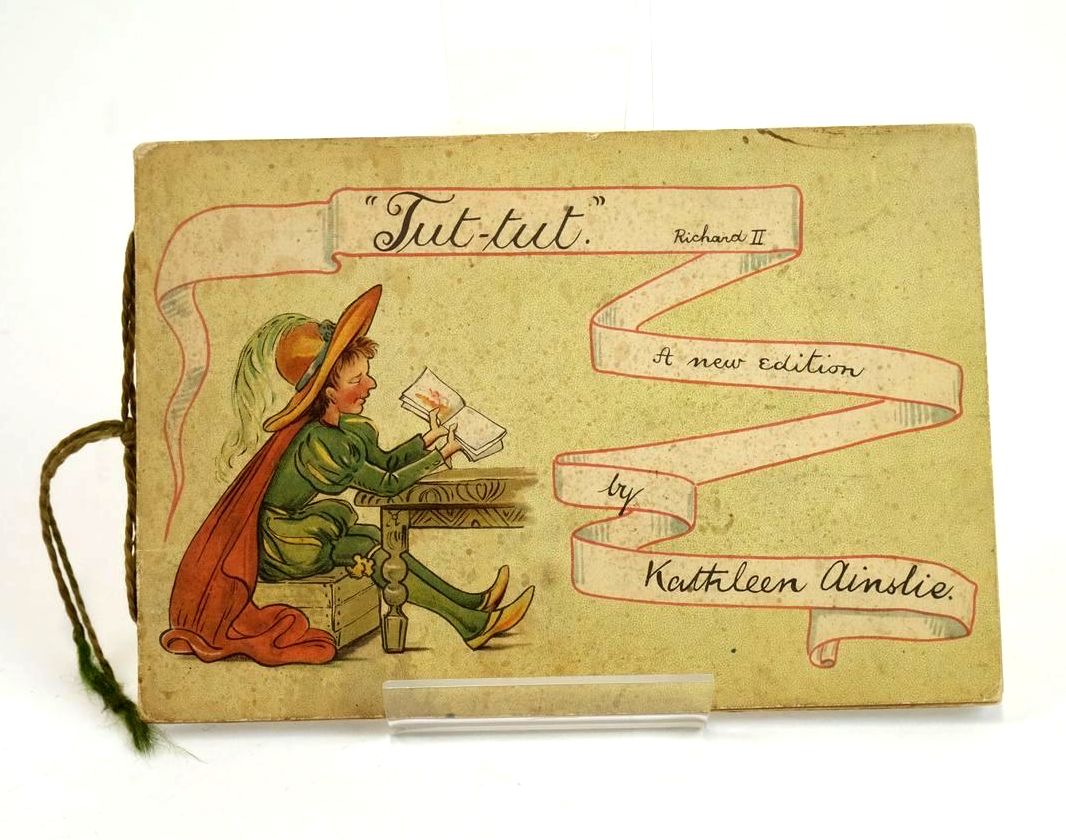 "Tut-tut."
Richard II
A new edition
by
Kathleen Ainslie.